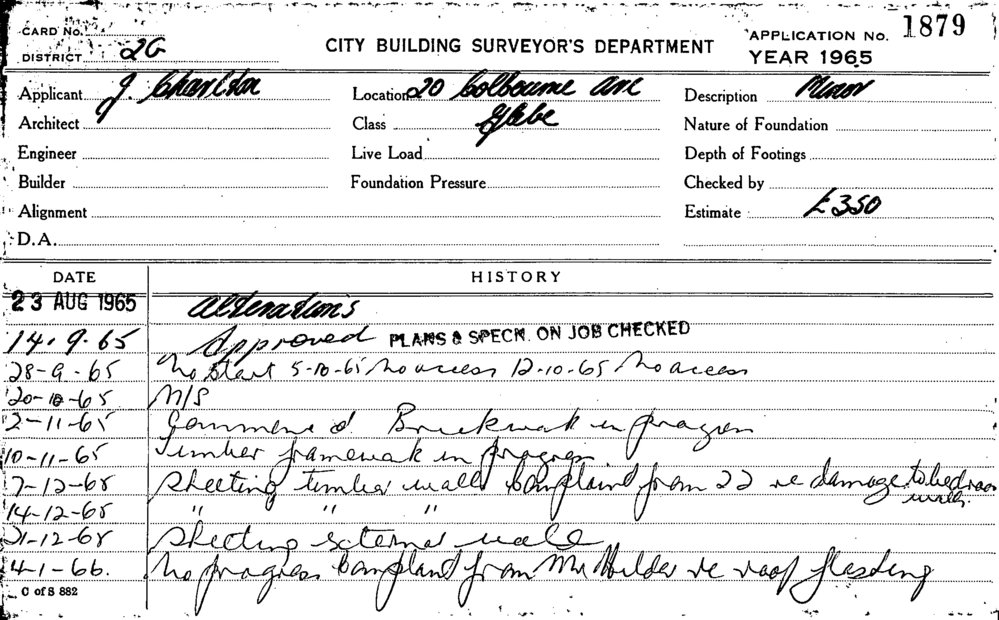 CARD No.
DISTRICT 2G
CITY BUILDING SURVEYOR'S DEPARTMENT
APPLICATION No. 1879
YEAR 1965
Applicant J. Charlton Location 20 Colbourne Ave Description Minor
Architect Class Glebe Nature of Foundation
Engineer Live Load Depth of Footings
Builder Foundation Pressure Checked by
Alignment Estimate £350
D.A.
DATE HISTORY
23 AUG 1965 Alteration's
14.9.65 Approved PLANS & SPECN. ON JOB CHECKED
28-9-65 No start 5-10-65 No access 12-10-65 No access
20-10-65 N/S
2-11-65 Commenc'd Brickwork in progress
10-11-65 Timber framework in progress
7-12-65 Sheeting timber walls Complaint from 22 re damage to bedroom walls.
14-12-65 " " "
21-12-65 Sheeting external walls
4-1-66. No progress Complaint from Mr re roof flashing
C of S 882